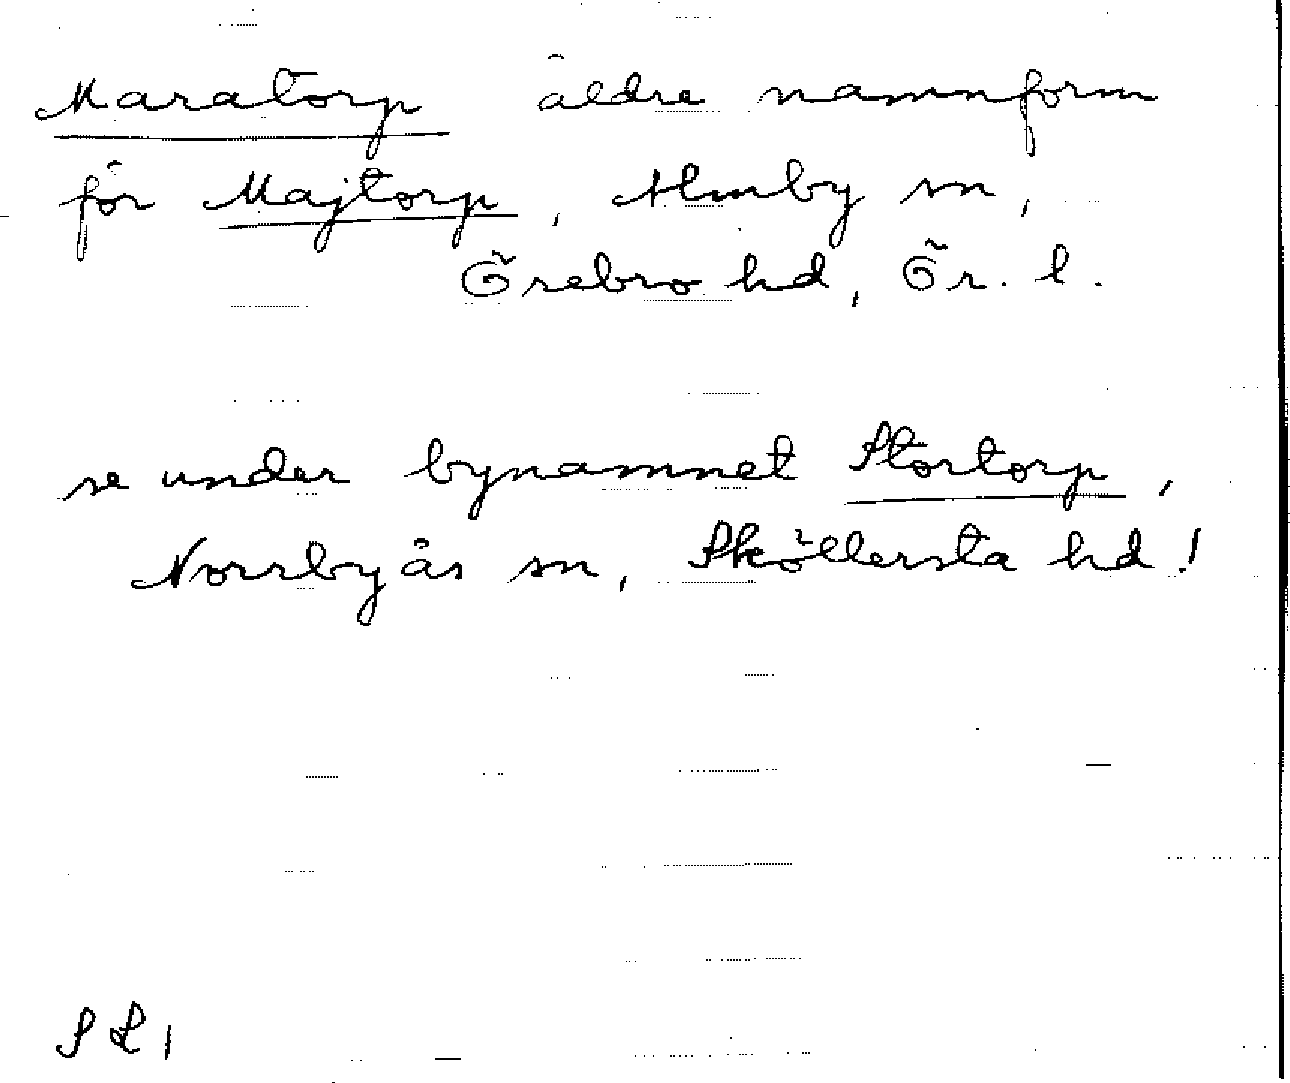 Maratorp äldre namnform
för Majtorp, Almby sn,
Örebro hd, Ör. l.
se under bynamnet Stortorp,
Norrbyås sn, Sköllersta hd!
SL1